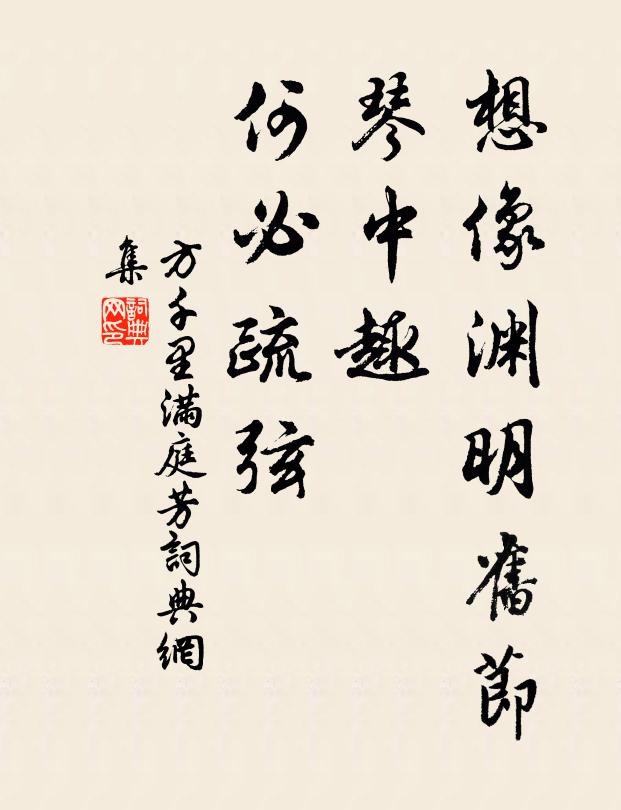 想像渊明舊節
琴中趣
何必疏弦
方千里满庭芳詞典網
集
詞典
网印